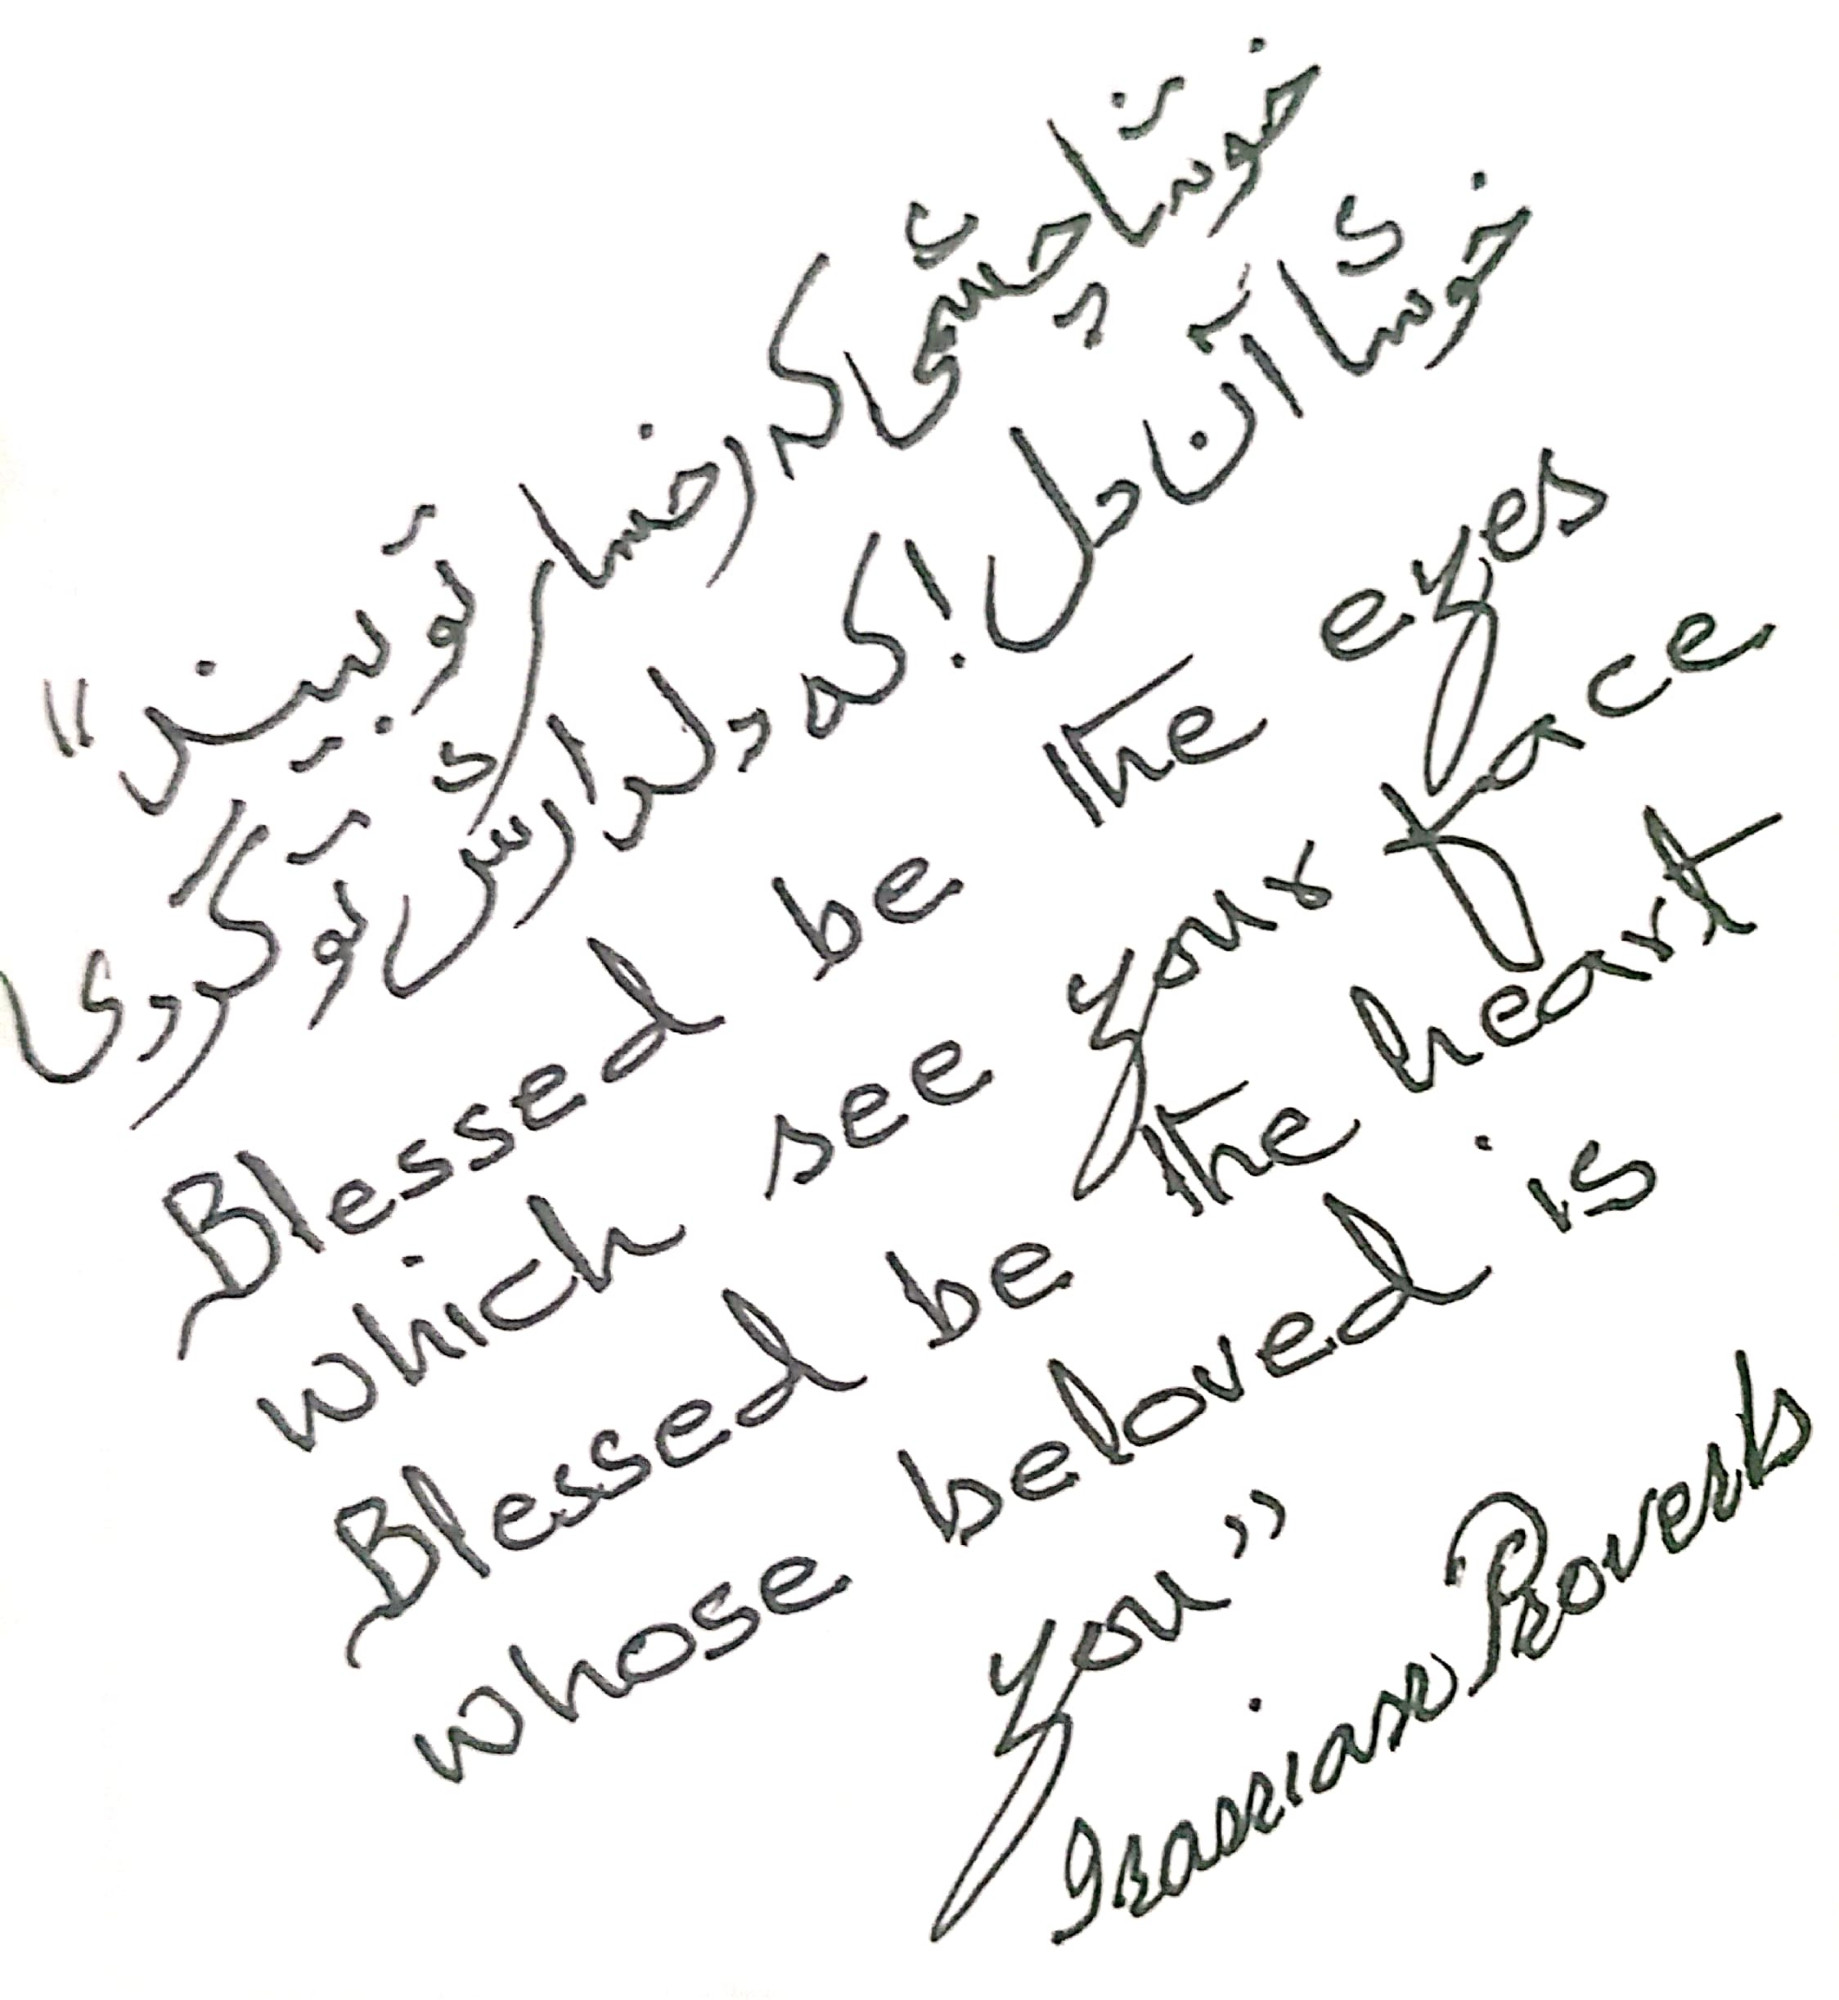 خوشا چشمی که رخسار تو بیند"
خوشا آن دل! که دلدارش تو گردی
Blessed be the eyes
which see your face
Blessed be the heart
whose beloved is
you"
Iranian Proverb